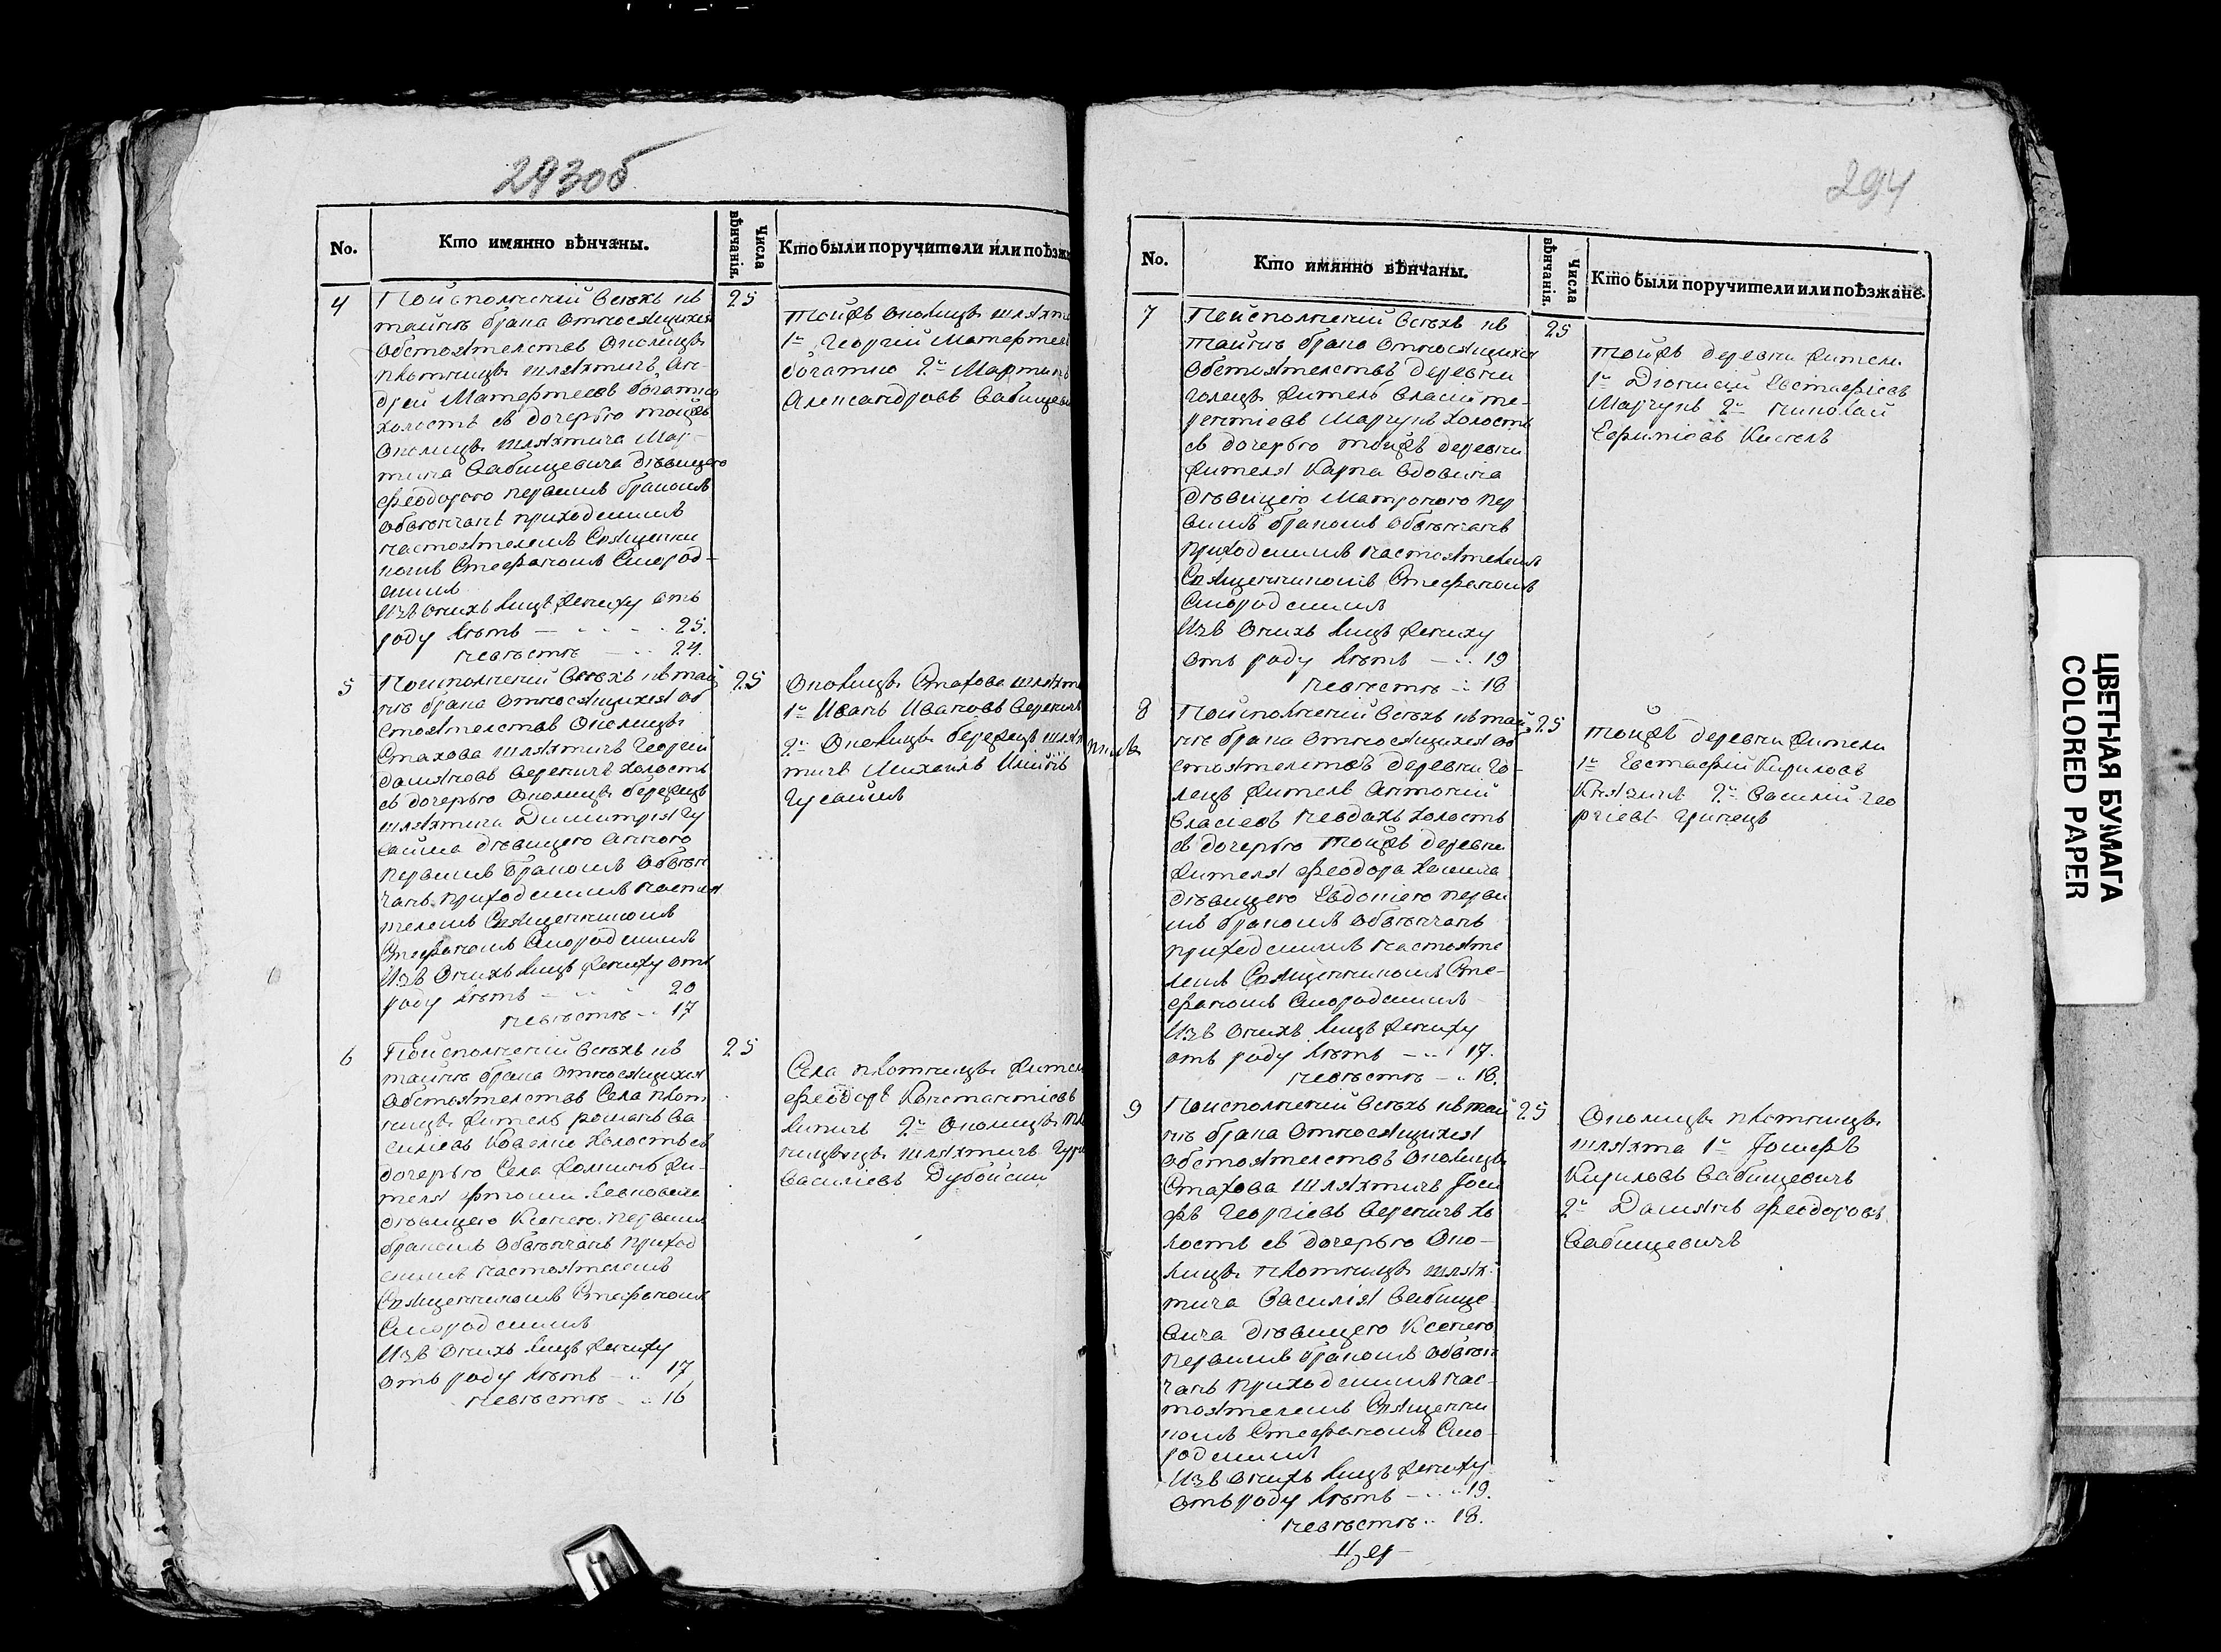 293об
No.
Кто имянно вѣнчаны.
Числа вѣнчанія.
Кто были поручители или поѣзж
4
По исполненіи всѣхъ къ
25
тайнѣ брака относящихся
обстоятелствъ околицы
плотницы шляхтичъ Ан-
дрей Матфеевъ богатко
холостъ съ дочерью тойжъ
околицы шляхтича Мар-
тина Вабищевича дѣвицею
Феодорою первымъ бракомъ
обвѣнчанъ приходскимъ
настоятелемъ Священни
комъ Стефаномъ Смород-
скимъ
Изъ оныхъ лицъ жениху отъ
роду лѣтъ — 25.
невѣстѣ — 24.
тойжъ околицы шляхт
1й Георгій Матфеев
богатко 2й Мартинъ
Александровъ Вабищеви
5
По исполненіи всѣхъ къ тай
25
нѣ брака относящихся об
стоятелствъ околицы
Стахова шляхтичъ Георгій
Дамяновъ Вереничъ холостъ
съ дочерью околицы бережцы
шляхтича Димитрія Гу
сайма дѣвицею Анною
первымъ бракомъ обвѣн
чанъ приходскимъ настоя
телемъ Священникомъ
Стефаномъ Смородскимъ
Изъ оныхъ лицъ жениху отъ
роду лѣтъ — 20
невѣстѣ — 17
околицы Стахова шляхт
1й Иванъ Ивановъ Вереничъ
2й околицы бережцы шлях
тичъ Михаилъ
6
По исполненіи всѣхъ къ
25
тайнѣ брака относящихся
обстоятелствъ Села плот
ницы житель романъ Ва
силіевъ холостъ съ
дочерью Села жи-
теля
дѣвицею Ксенею первымъ
бракомъ обвѣнчанъ приход
скимъ настоятелемъ
Священникомъ Стефаномъ
Смородскимъ
Изъ оныхъ лицъ жениху
отъ роду лѣтъ — 17
невѣстѣ — 16
Села плотницы жител
Феодоръ Константіевъ
2й околицы
шляхтичъ
Василіевъ Дубойски
294
No.
Кто имянно вѣнчаны.
Числа вѣнчанія.
Кто были поручители или поѣзжане.
7
По исполненіи всѣхъ къ
25
тайнѣ брака относящихся
обстоятелствъ деревни
голецъ житель Власій те-
рентіевъ холостъ
съ дочерью тойжъ деревни
жителя Карпа
дѣвицею Матроною пер
вымъ бракомъ обвѣнчанъ
приходскимъ настоятелемъ
Священникомъ Стефаномъ
Смородскимъ
Изъ оныхъ лицъ жениху
отъ роду лѣтъ — 19
невѣстѣ — 18
тойжъ деревни жители
1й Діонисій Евстафіевъ
2й николай
Ефиміевъ Киселъ
8
По исполненіи всѣхъ къ тай
25
нѣ брака относящихся об
стоятелствъ деревни го-
лецъ житель Антоній
Власіевъ холостъ
съ дочерью тойжъ деревни
жителя Феодора
дѣвицею Евдокіею первы
мъ бракомъ обвѣнчанъ
приходскимъ настояте
лемъ Священникомъ Сте-
фаномъ Смородскимъ
Изъ оныхъ лицъ жениху
отъ роду лѣтъ — 17.
невѣстѣ — 18.
тойжъ деревни жители
1й Евстафій Кириловъ
2й Василій Гео
ргіевъ Гринецъ
9
По исполненіи всѣхъ къ тай
25
нѣ брака относящихся
обстоятелствъ околицы
Стахова шляхтичъ Іоси
фъ Георгіевъ Вереничъ хо
лостъ съ дочерью око-
лицы плотницы шлях-
тича Василія Вабище
вича дѣвицею Ксенею
первымъ бракомъ обвѣн
чанъ приходскимъ нас-
тоятелемъ Священни
комъ Стефаномъ Смо-
родскимъ
Изъ оныхъ лицъ жениху
отъ роду лѣтъ — 19.
невѣстѣ — 18.
околицы плотницы
шляхта 1й Іосифъ
Кириловъ Вабищевичъ
2й Дамянъ Феодоровъ
Вабищевичъ
ЦВЕТНАЯ БУМАГА
COLORED PAPER